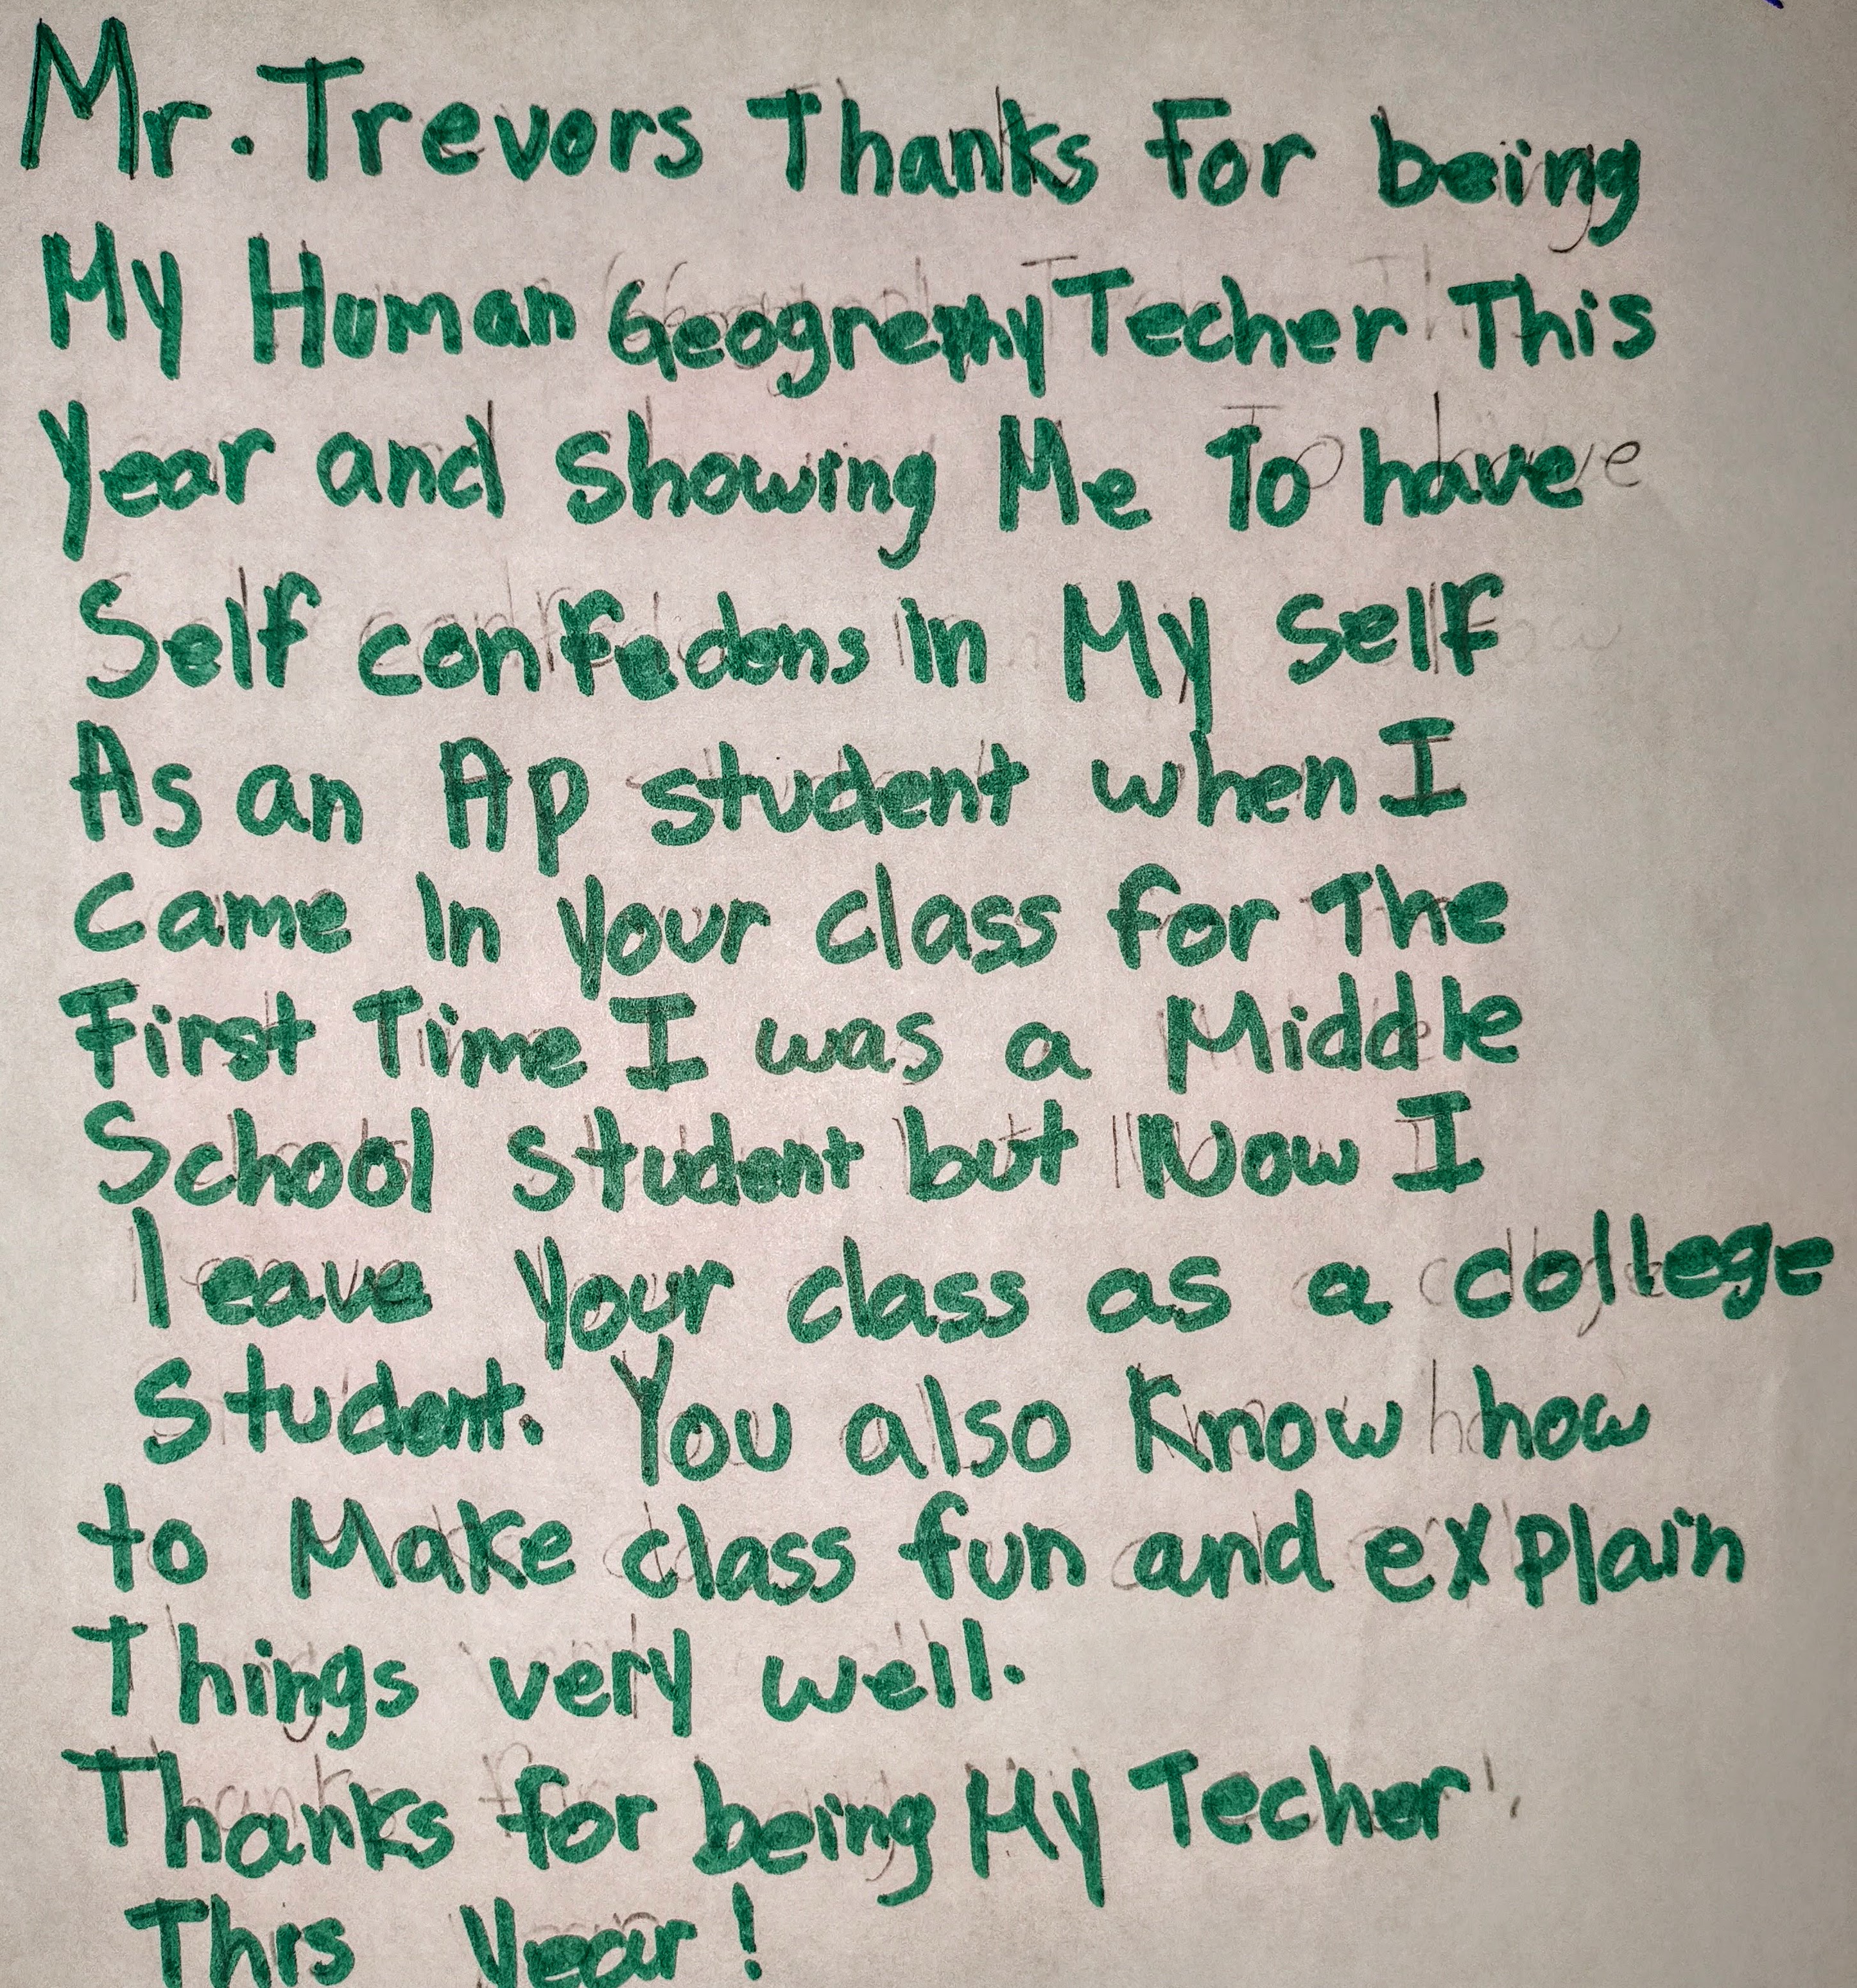 Mr. Trevors Thanks For being
My Human Geogrephy Techer This
Year and Showing Me To have
Self confedens in My self
As an Ap student when I
Came In your class for The
First Time I was a Middle
School student but Now I
leave your class as a college
Student. You also Know how
to Make class fun and explain
Things very well.
Thanks for being My Techer
This Year!